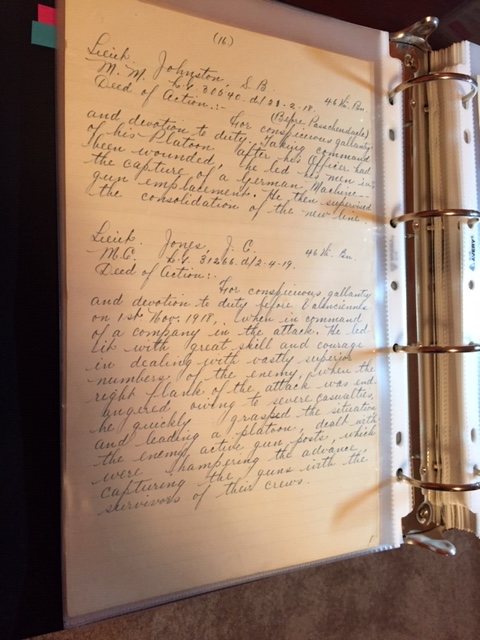 (16)
Lieut. Johnston, S.B. 46th Bn.
M.M. L.G. 30040 d/23-2-18.
Deed of Action:- (Before Passchendaele)
For conspicuous gallantry
and devotion to duty. Taking command
of his Platoon after his Officer had
been wounded, he led his men in
the capture of a German Machine-
gun emplacement. He then supervised
the consolidation of the new line
Lieut. Jones, J.C. 46th Bn.
M.C. L.G. 31266 d/2-4-19.
Deed of Action:-
For conspicuous gallantry
and devotion to duty before Valenciennes
on 1st Nov. 1918, when in command
of a company in the attack. He led
it with great skill and courage
in dealing with vastly superior
numbers of the enemy, when the
right flank of the attack was end-
angered, owing to severe casualties,
he quickly grasped the situation
and leading a platoon, dealt with
the enemy active gun posts, which
were hampering the advance,
capturing the guns with the
survivors of their crews.
AVERY